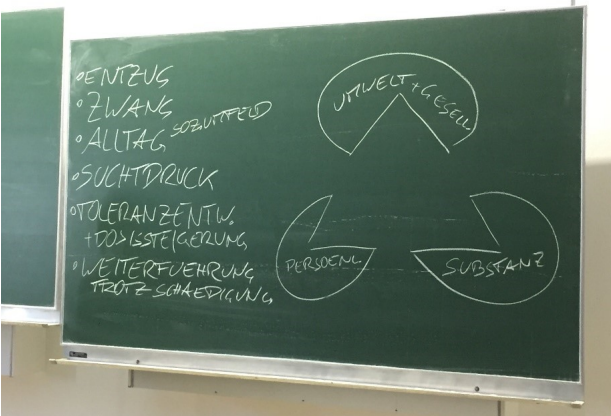 ENTZUG
ZWANG
ALLTAG SOZ.UMFELD
SUCHTDRUCK
TOLERANZENTW.
+DOSISSTEIGERUNG
WEITERFUEHRUNG
TROTZ SCHAEDIGUNG
UMWELT+GESELL
PERSOENL.
SUBSTANZ